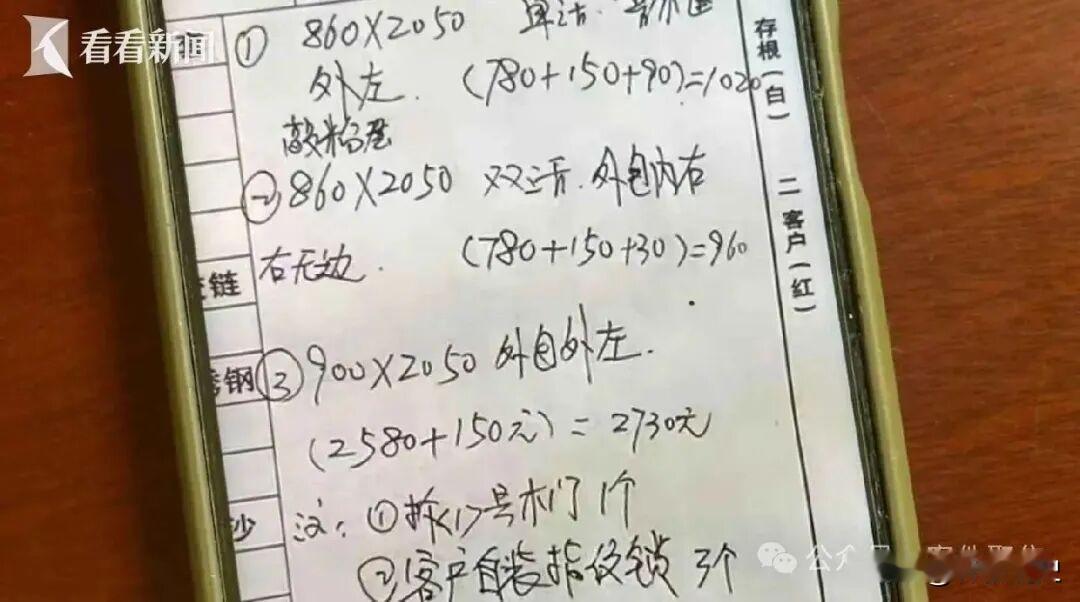 看看新闻
① 860X2050 单活.
外左. (780+150+90)=1020
② 860X2050 双活.外包内右
右无边. (780+150+30)=960
③ 900X2050 外包外左.
(2580+150元)=2730元
注: ①拆<1>号木门 1个
②客户自装指纹锁 3个
链
钢
沙
存根(白)
二客户(红)
公众号